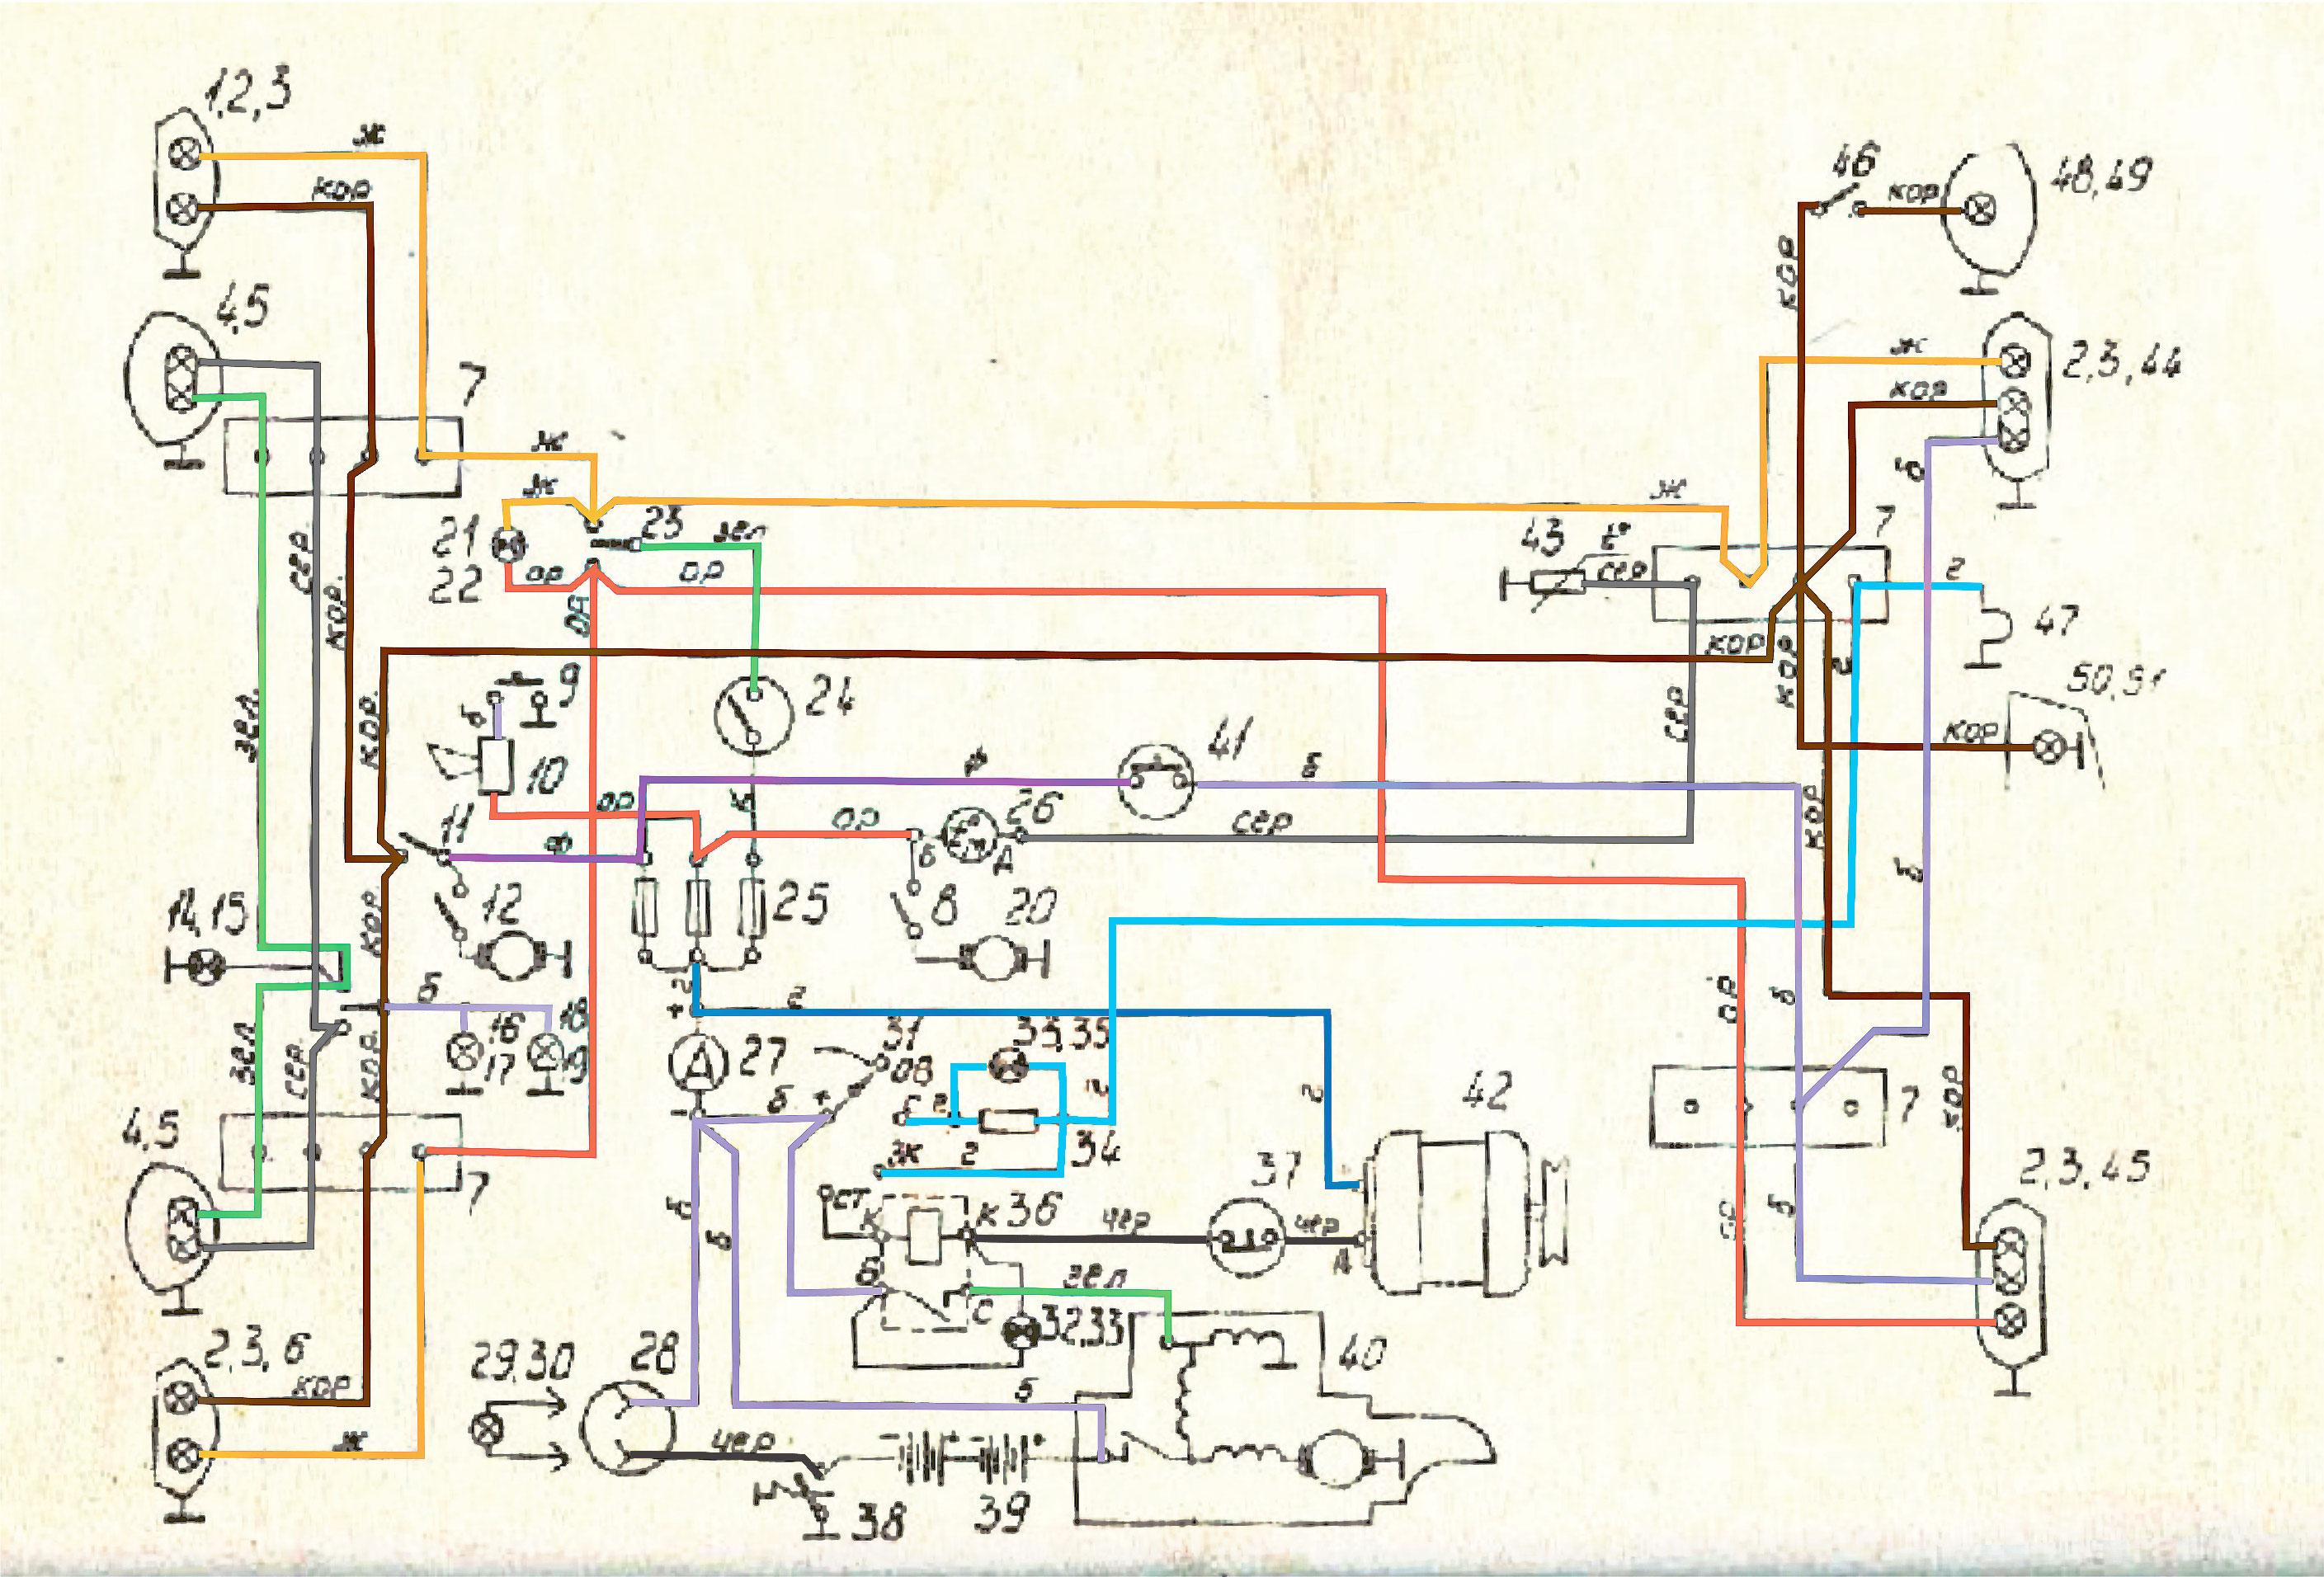 1,2,3
Ж
КОР
4,5
7
Ж
Ж
21
22
23
зел
ОР
ОР
ОР
сер
КОР.
зел.
КОР.
9
б
10
ОР
24
б
11
Ф
12
25
ОР
Ф
41
б
26
б
Д
сер
8
20
14,15
КОР
б
16
17
18
19
зел
сер.
КОР
4,5
7
2,3,6
КОР
Ж
г
+
г
А
27
-
б
+
31
ОВ
33,35
г
г
34
ЗК
г
г
РСТ
К
К
36
чер
37
чер
Д
42
Б
С
зел
32,33
40
б
б
б
29,30
28
чер
38
-
+
39
46
КОР
48,49
КОР
Ж
2,3,44
КОР
б
Ж
43
сер
7
г
47
КОР
КОР
г
50,51
КОР
сер
КОР
б
ОР
б
7
КОР
2,3,45
ОР
б